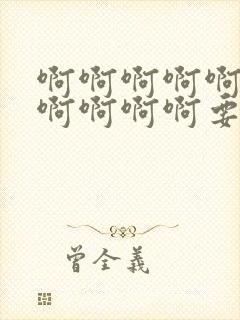 啊啊啊啊啊
啊啊啊啊要
曾全義